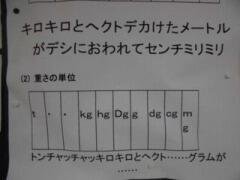 キロキロとヘクトデカけたメートル
がデシにおわれてセンチミリミリ
(2) 重さの単位
t ・ ・ kg hg Dg g dg cg mg
トンチャッチャッキロキロとヘクト……グラムが
……